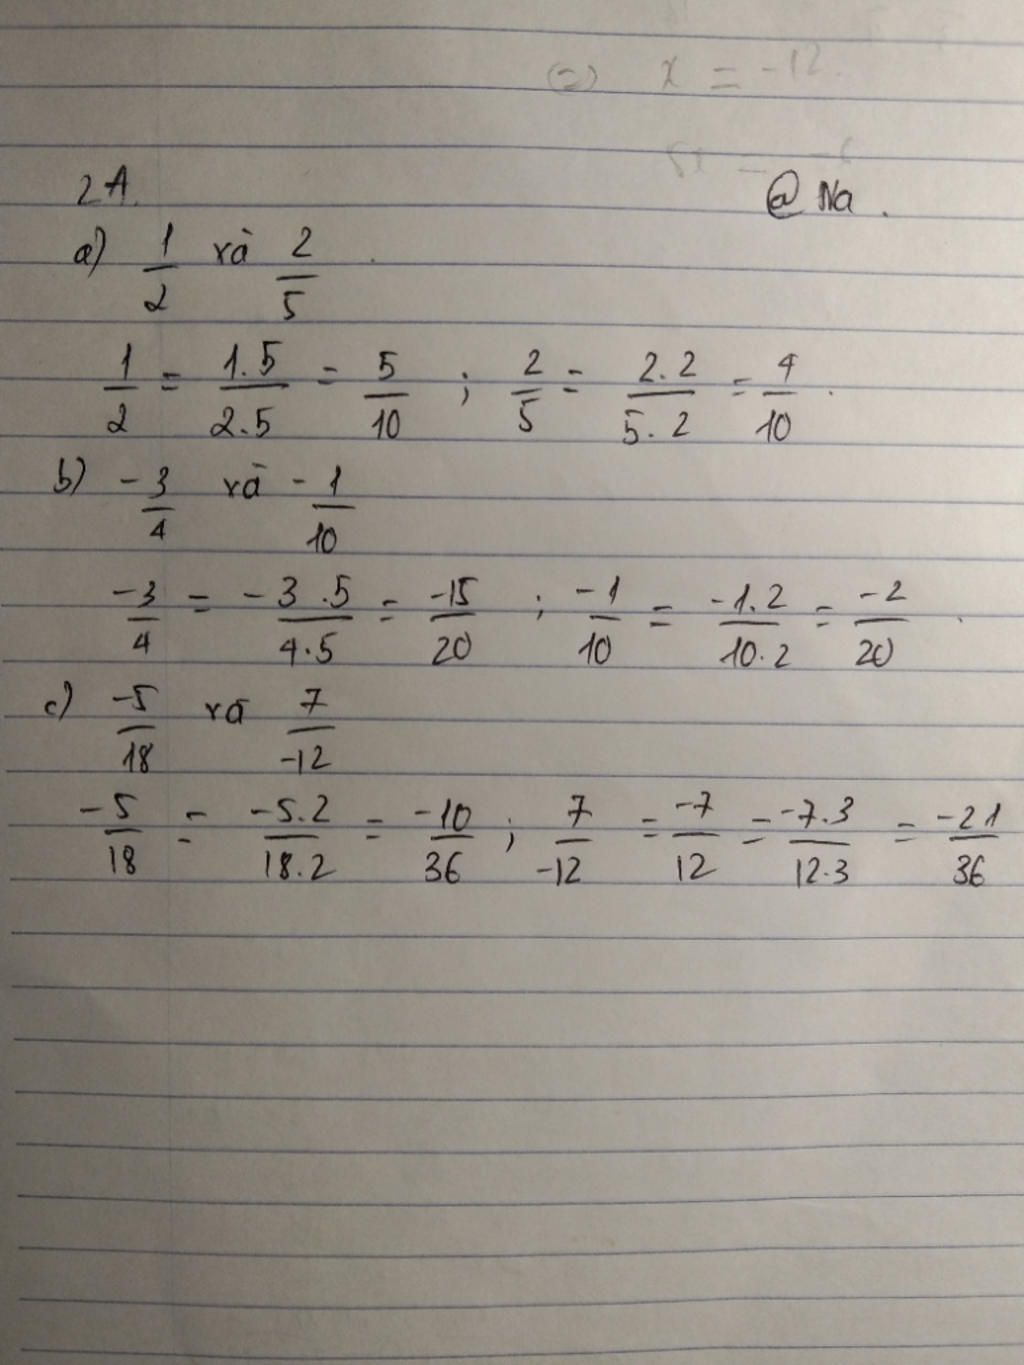 (=) x = -12.
2A.
@ Na.
a) 1/2 và 2/5.
1/2 = 1.5/2.5 = 5/10 ; 2/5 = 2.2/5.2 = 4/10.
b) -3/4 và -1/10
-3/4 = -3.5/4.5 = -15/20 ; -1/10 = -1.2/10.2 = -2/20.
c) -5/18 và 7/-12
-5/18 = -5.2/18.2 = -10/36 ; 7/-12 = -7/12 = -7.3/12.3 = -21/36